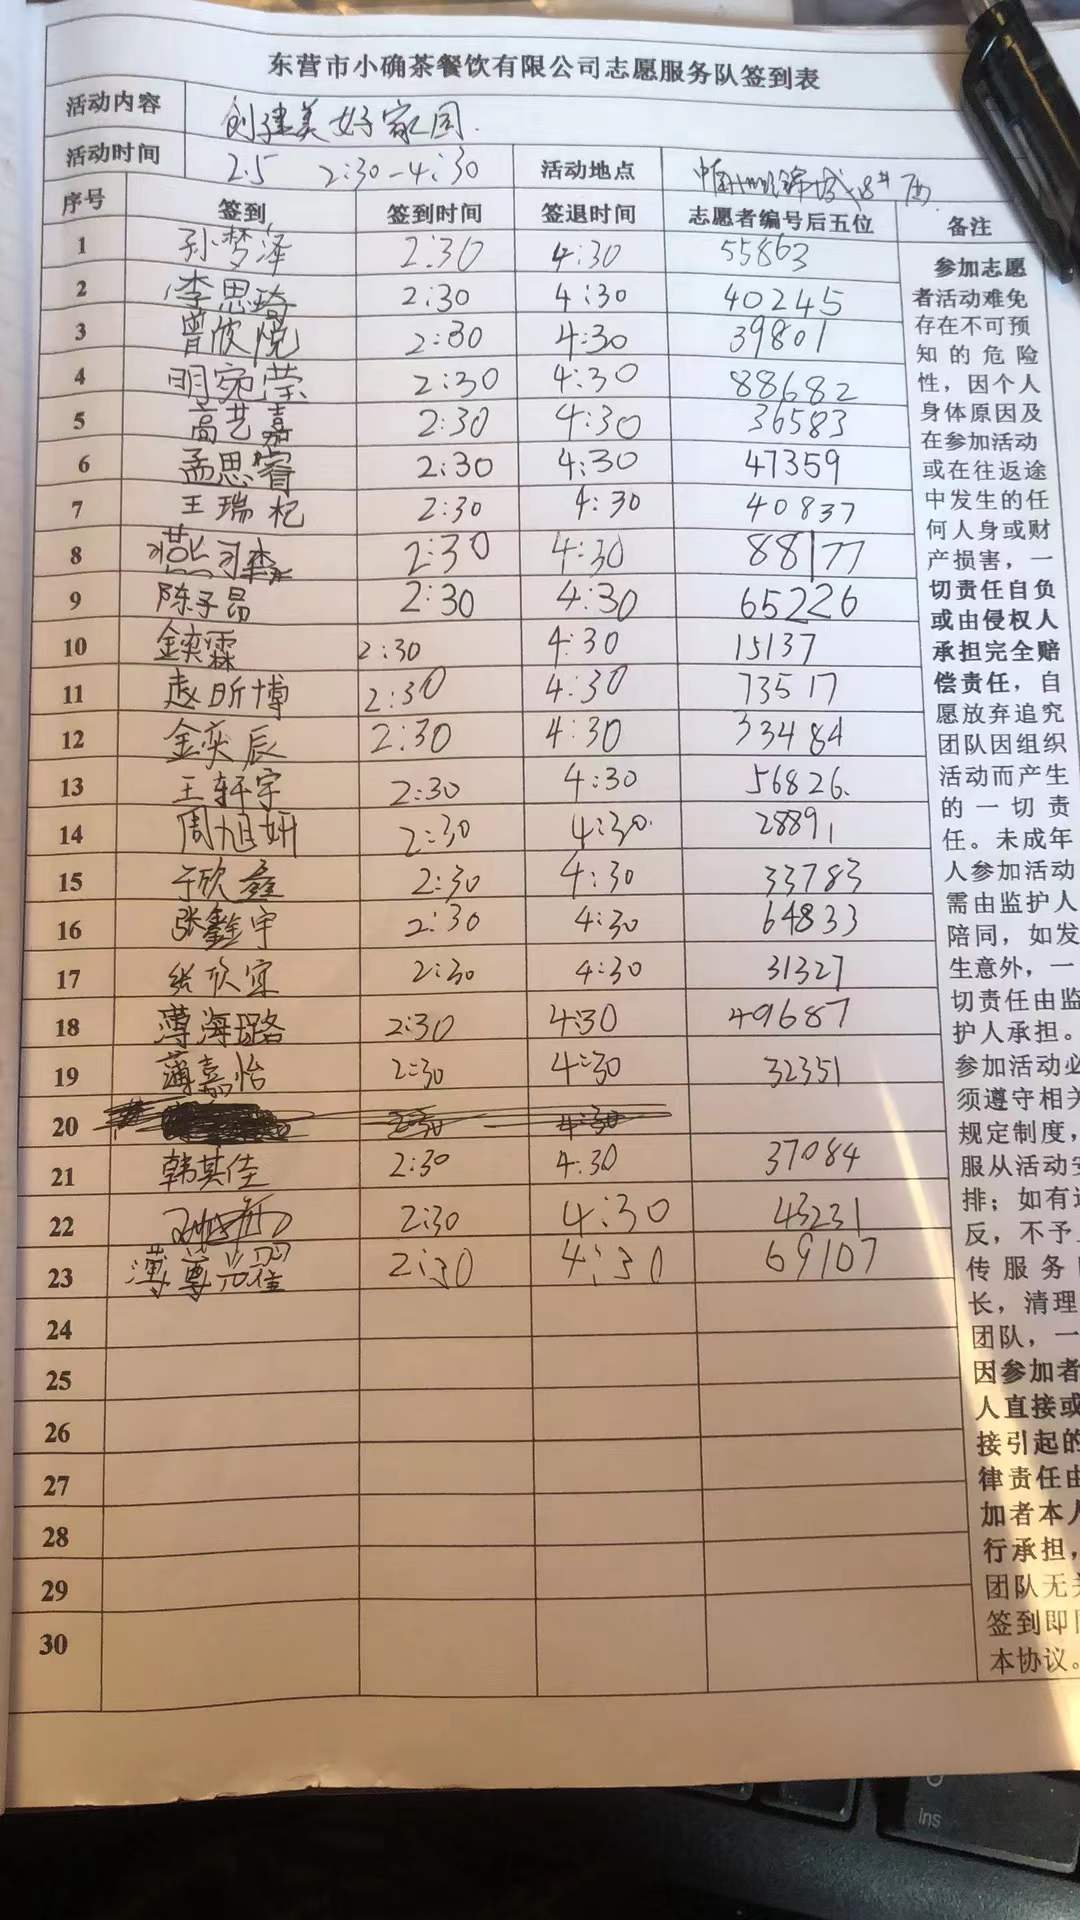 东营市小确茶餐饮有限公司志愿服务队签到表
活动内容 创建美好家园.
活动时间 2.5 2:30-4:30 活动地点
序号 签到 签到时间 签退时间 志愿者编号后五位 备注
1 孙梦泽 2:30 4:30 55863
2 李思琦 2:30 4:30 40245
3 曾欣悦 2:30 4:30 39801
4 明宛莹 2:30 4:30 88682
5 高艺嘉 2:30 4:30 36583
6 孟思睿 2:30 4:30 47359
7 王瑞杞 2:30 4:30 40837
8 2:30 4:30 88177
9 陈子昂 2:30 4:30 65226
10 金奕霖 2:30 4:30 15137
11 赵昕博 2:30 4:30 73517
12 金奕辰 2:30 4:30 33484
13 王轩宇 2:30 4:30 56826.
14 周旭妍 2:30 4:30. 28891
15 于欣鑫 2:30 4:30 33783
16 张鑫宇 2:30 4:30 64833
17 张欣宜 2:30 4:30 31327
18 薄海璐 2:30 4:30 49687
19 薄嘉怡 2:30 4:30 32351
20 2:30 4:30
21 韩其佳 2:30 4:30 37084
22 2:30 4:30 43231
23 2:30 4:30 69107
24
25
26
27
28
29
30
参加志愿
者活动难免
存在不可预
知的危险
性，因个人
身体原因及
在参加活动
或在往返途
中发生的任
何人身或财
产损害，一
切责任自负
或由侵权人
承担完全赔
偿责任，自
愿放弃追究
团队因组织
活动而产生
的一切责
任。未成年
人参加活动
需由监护人
陪同，如发
生意外，一
切责任由监
护人承担。
参加活动必
须遵守相关
规定制度，
服从活动安
排；如有违
反，不予上
传服务时
长，清理
团队，一
因参加者
人直接或
接引起的
律责任由
加者本人
行承担，
团队无关
签到即同
本协议。
Ins